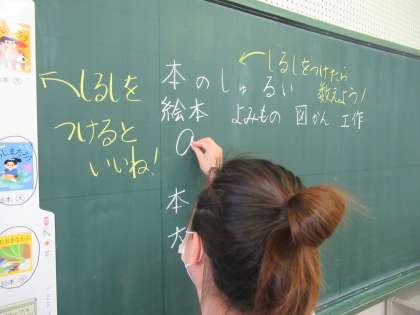 ←しるしを
つけると
いいね!
本のしゅるい
絵本 よみもの 図かん 工作
本
←しるしをつけたら
教えよう!